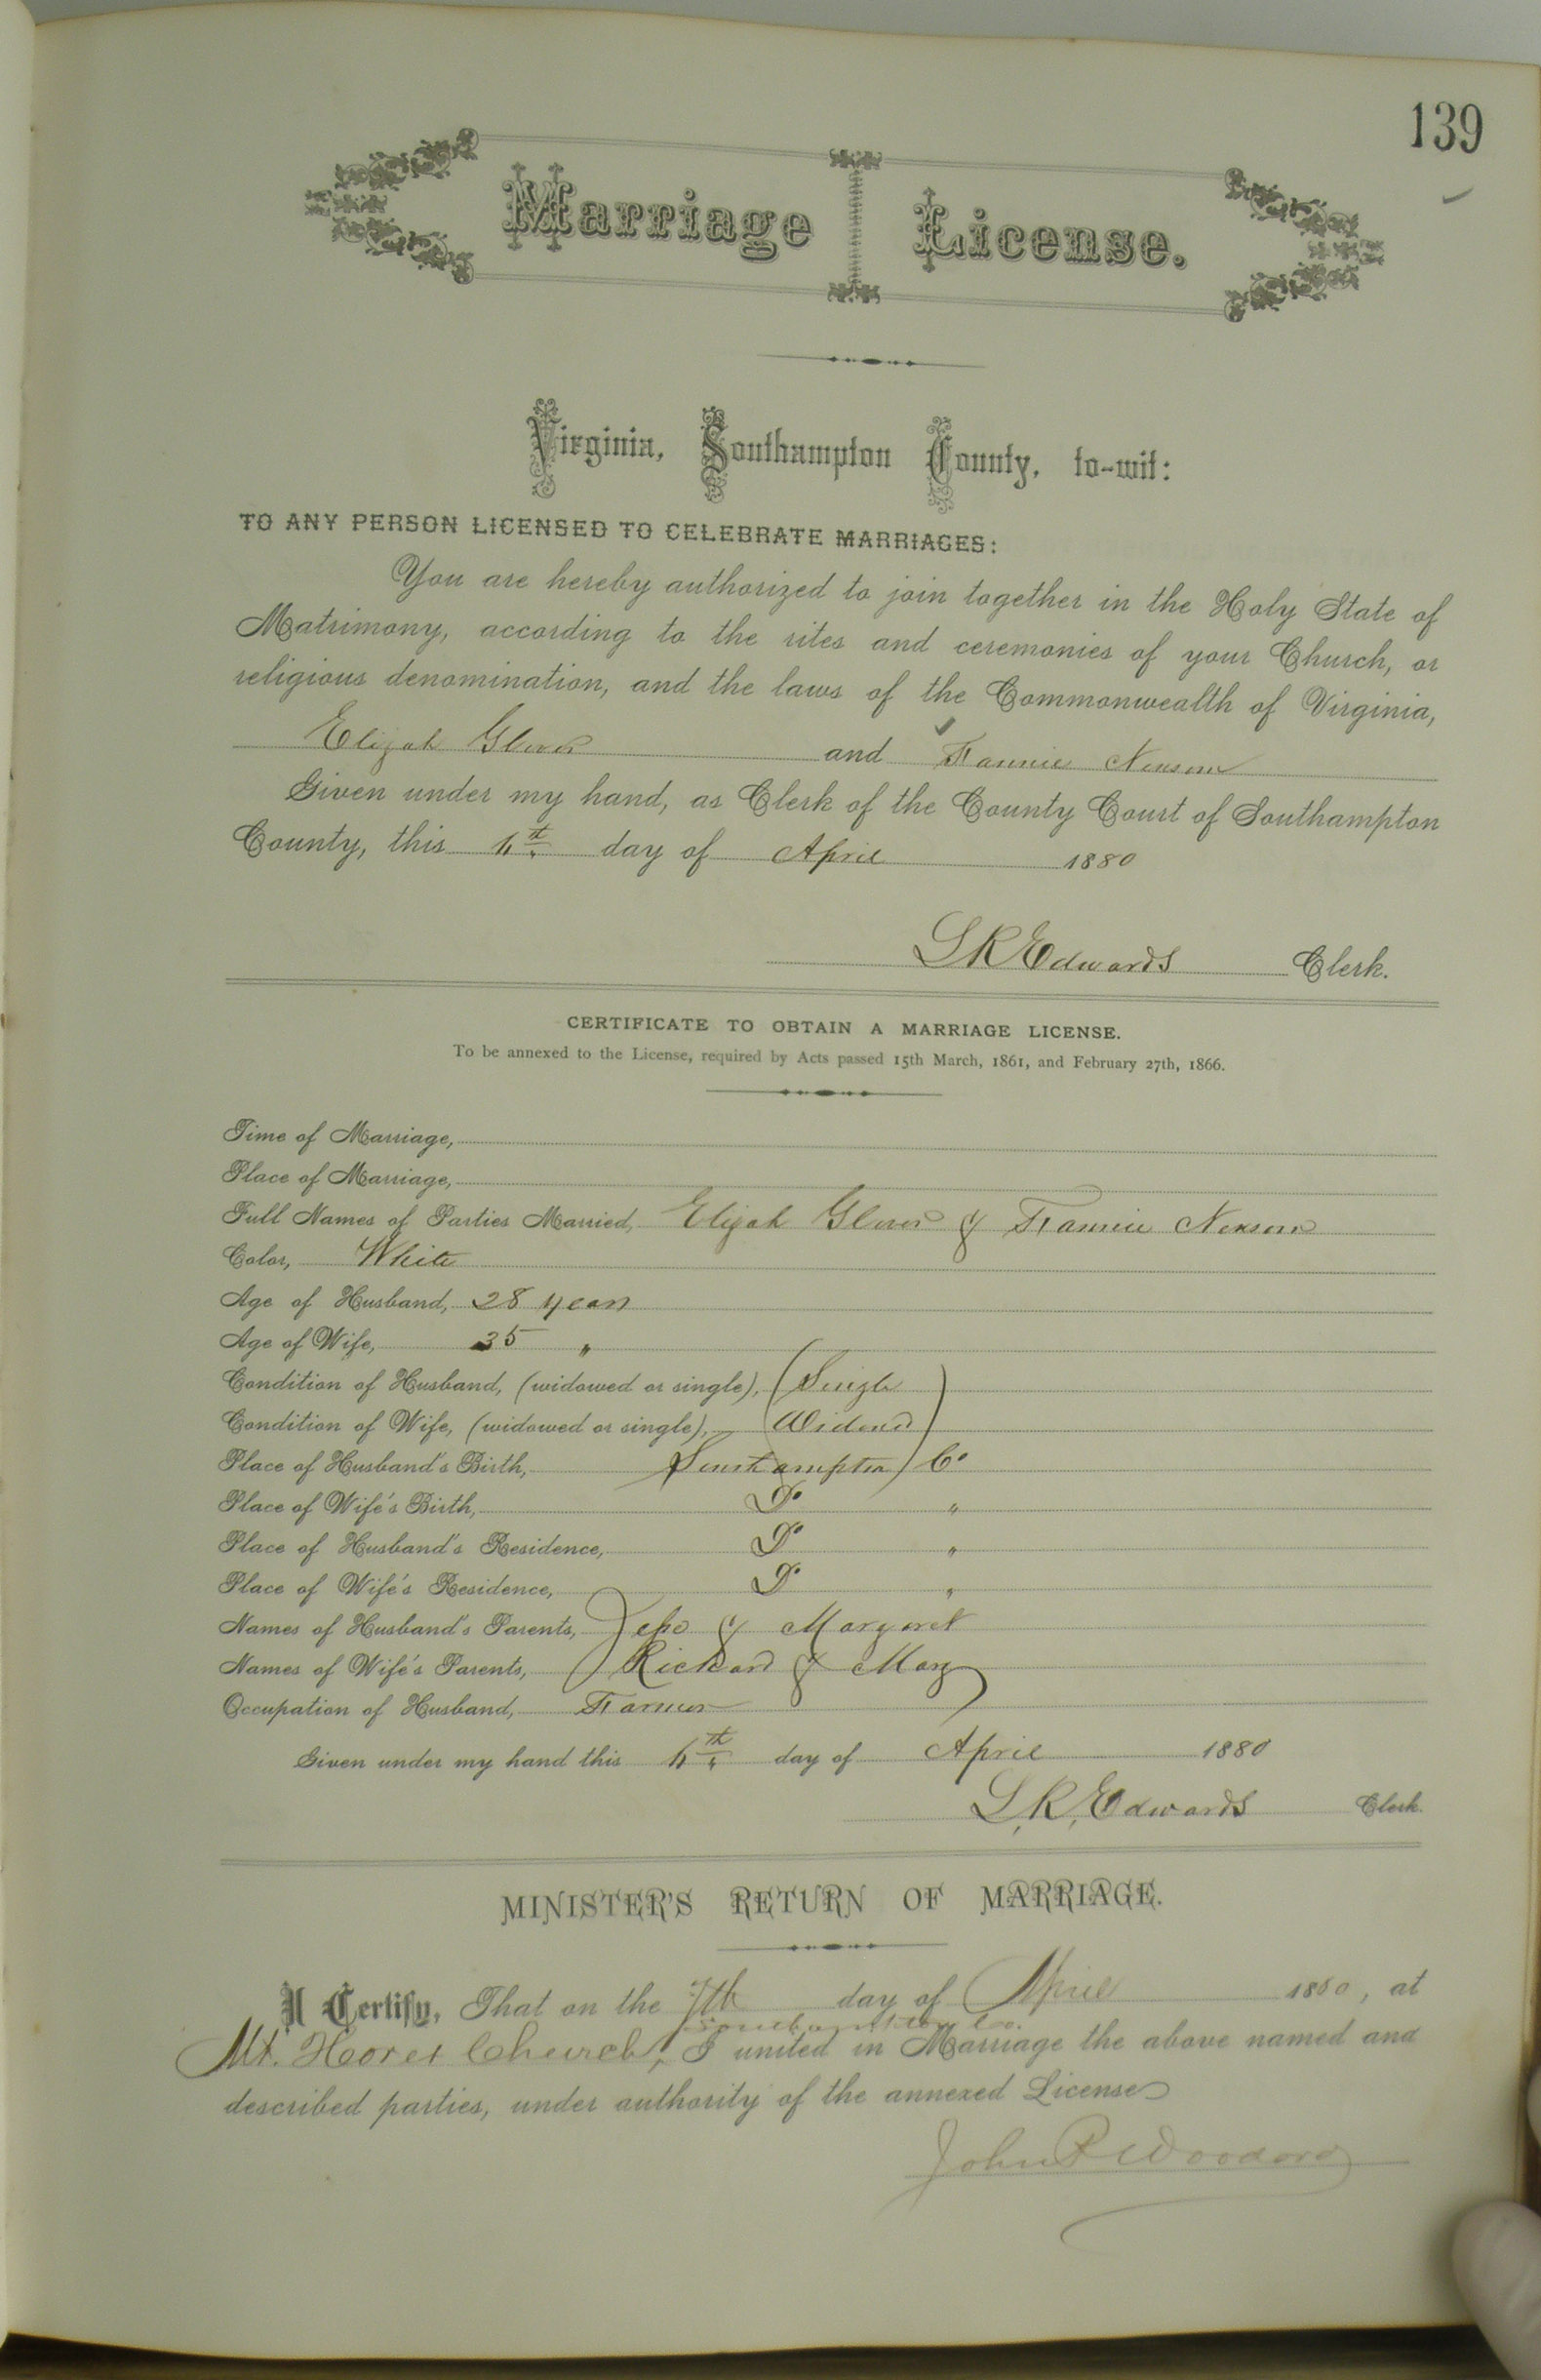 139
Marriage License.
Virginia, Southampton County, to-wit:
TO ANY PERSON LICENSED TO CELEBRATE MARRIAGES:
You are hereby authorized to join together in the Holy State of
Matrimony, according to the rites and ceremonies of your Church, or
religious denomination, and the laws of the Commonwealth of Virginia,
Elijah Glover and Fannie Newsom
Given under my hand, as Clerk of the County Court of Southampton
County, this day of April 1880
L R Edwards Clerk.
CERTIFICATE TO OBTAIN A MARRIAGE LICENSE.
To be annexed to the License, required by Acts passed 15th March, 1861, and February 27th, 1866.
Time of Marriage,
Place of Marriage,
Full Names of Parties Married, Elijah Glover & Fannie Newsom
Color, White
Age of Husband, 28 years
Age of Wife, 35 "
Condition of Husband, (widowed or single), Single
Condition of Wife, (widowed or single), Widowed
Place of Husband's Birth, Southampton Co
Place of Wife's Birth, Do "
Place of Husband's Residence, Do "
Place of Wife's Residence, Do "
Names of Husband's Parents, & Margaret
Names of Wife's Parents, Richard & Mary
Occupation of Husband, Farmer
Given under my hand this day of April 1880
L. R. Edwards Clerk.
MINISTER'S RETURN OF MARRIAGE.
I Certify, That on the 7th day of April 1880, at
Southampton Co.
Mt. Horeb Church, I united in Marriage the above named and
described parties, under authority of the annexed License
John P Woodard